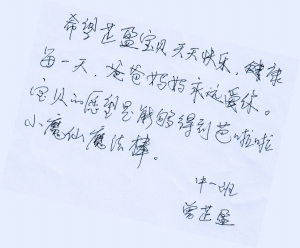 希望芷盈宝贝天天快乐，健康
每一天，爸爸妈妈永远爱你。
宝贝的愿望是能够得到芭啦啦
小魔仙魔法棒。
中一班
曾芷盈